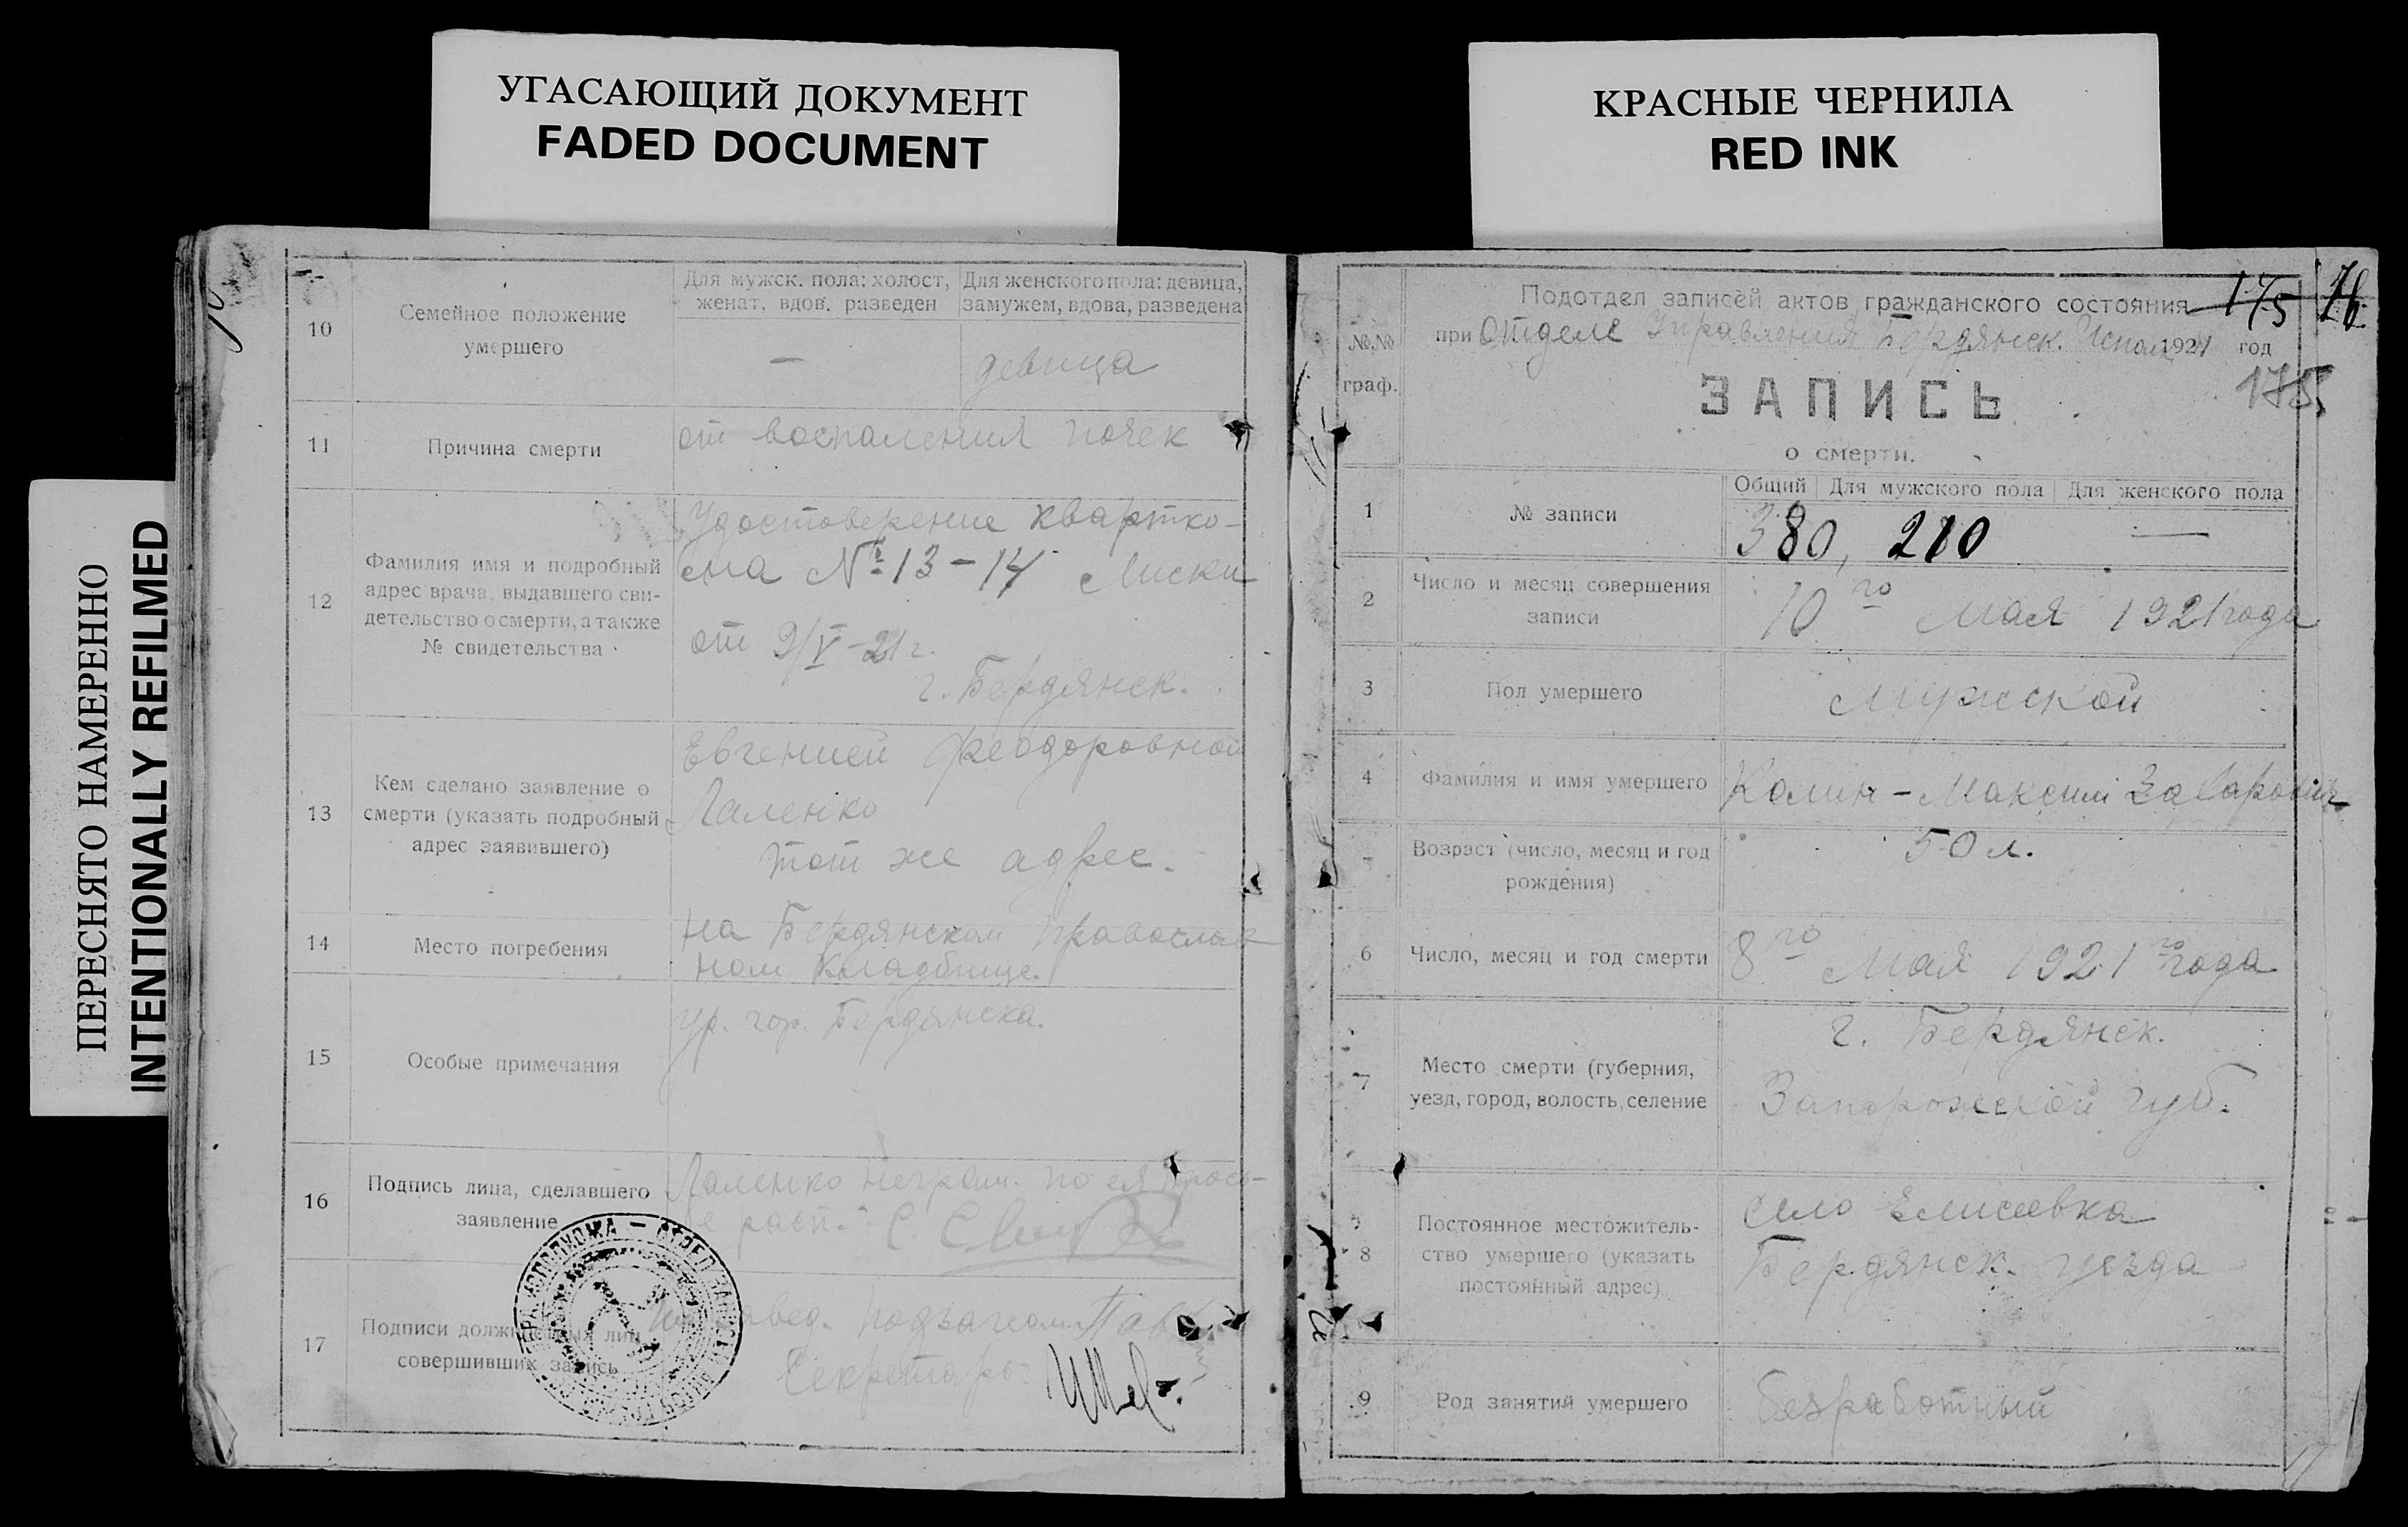 УГАСАЮЩИЙ ДОКУМЕНТ
FADED DOCUMENT
КРАСНЫЕ ЧЕРНИЛА
RED INK
ПЕРЕСНЯТО НАМЕРЕННО
INTENTIONALLY REFILMED
10
Семейное положение
умершего
Для мужск. пола: холост,
женат, вдов. разведен
Для женского пола: девица,
замужем, вдова, разведена
—
девица
11
Причина смерти
от воспаления почек
12
Фамилия имя и подробный
адрес врача, выдавшего сви-
детельство о смерти, а также
№ свидетельства
Удостоверение квартко-
ма № 13-14 Лиски
от 9/V-21 г.
г. Бердянск.
13
Кем сделано заявление о
смерти (указать подробный
адрес заявившего)
Евгенией Феодоровной
Паленко
тот же адрес.
14
Место погребения
на Бердянском православ
ном кладбище.
15
Особые примечания
ур. гор. Бердянска.
16
Подпись лица, сделавшего
заявление
Паленко неграм. по ея прось-
бе расп.
17
Подписи должностных лиц
совершивших запись
завед. подзагсом
Секретарь:
175
76
№№
граф.
Подотдел записей актов гражданского состояния
при Отделе Управления Бердянск. Исполк 1921 год
175
ЗАПИСЬ
о смерти.
1
№ записи
Общий
Для мужского пола
Для женского пола
380,
210
—
2
Число и месяц совершения
записи
10го мая 1921 года
3
Пол умершего
Мужской
4
Фамилия и имя умершего
Калин - Максим
Возраст (число, месяц и год
рождения)
50 л.
6
Число, месяц и год смерти
8го Мая 1921го года
7
Место смерти (губерния,
уезд, город, волость, селение
г. Бердянск.
Запорожской губ.
8
Постоянное местожитель-
ство умершего (указать
постоянный адрес)
село Елисеевка
Бердянск. уезда
9
Род занятий умершего
безработный